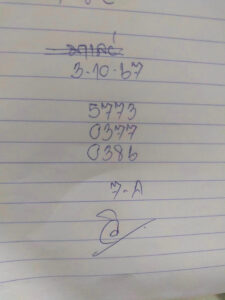 3-10-67
5773
0377
0386
7-A